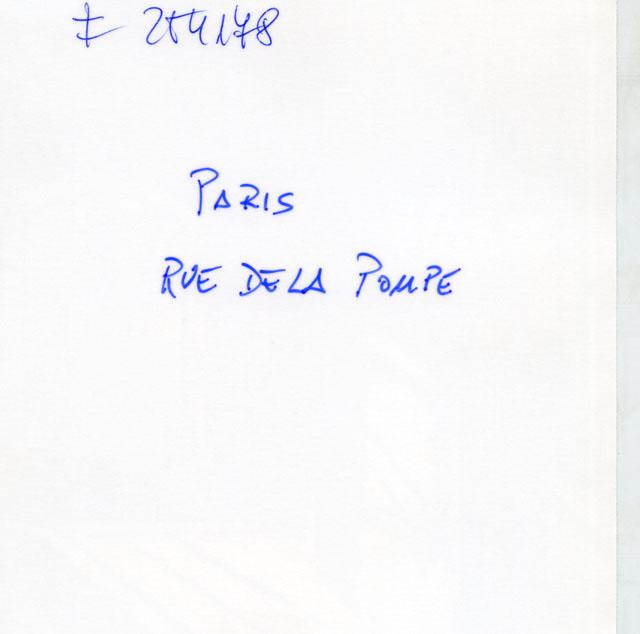 PARIS
RUE DE LA POMPE